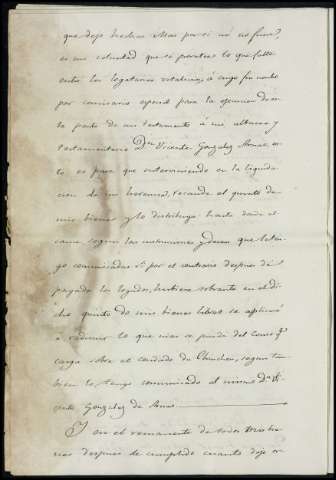 que dejo hechas. Mas por si no los fuere,
es mi voluntad que si prorratee lo que falte
entre los legatarios voluntarios, á cuyo fin nombro
por comisario especial para la ejecucion de es
ta parte de mi testamento á mi albacea y
testamentario Dn Vicente Gonzalez Arnao, es
to es para que interviniendo en la liquida
cion de mi herencia, recaude el quinto de
mis bienes y lo distribuya hasta donde al
cance segun las instrucciones y deseos que le ten
go comunicadas. Si por el contrario despues de
pagados los legados, hubiere sobrante en el di
cho quinto de mis bienes libres se aplicará
á redimir lo que mas se pueda del Censo qe
carga sobre el condado de Chinchon, segun tam
bien lo tengo comunicado al mismo Dn Vi
cente Gonzalez de Arnao
Y en el remanente de todos mis bie
nes despues de cumplido cuanto dejo or